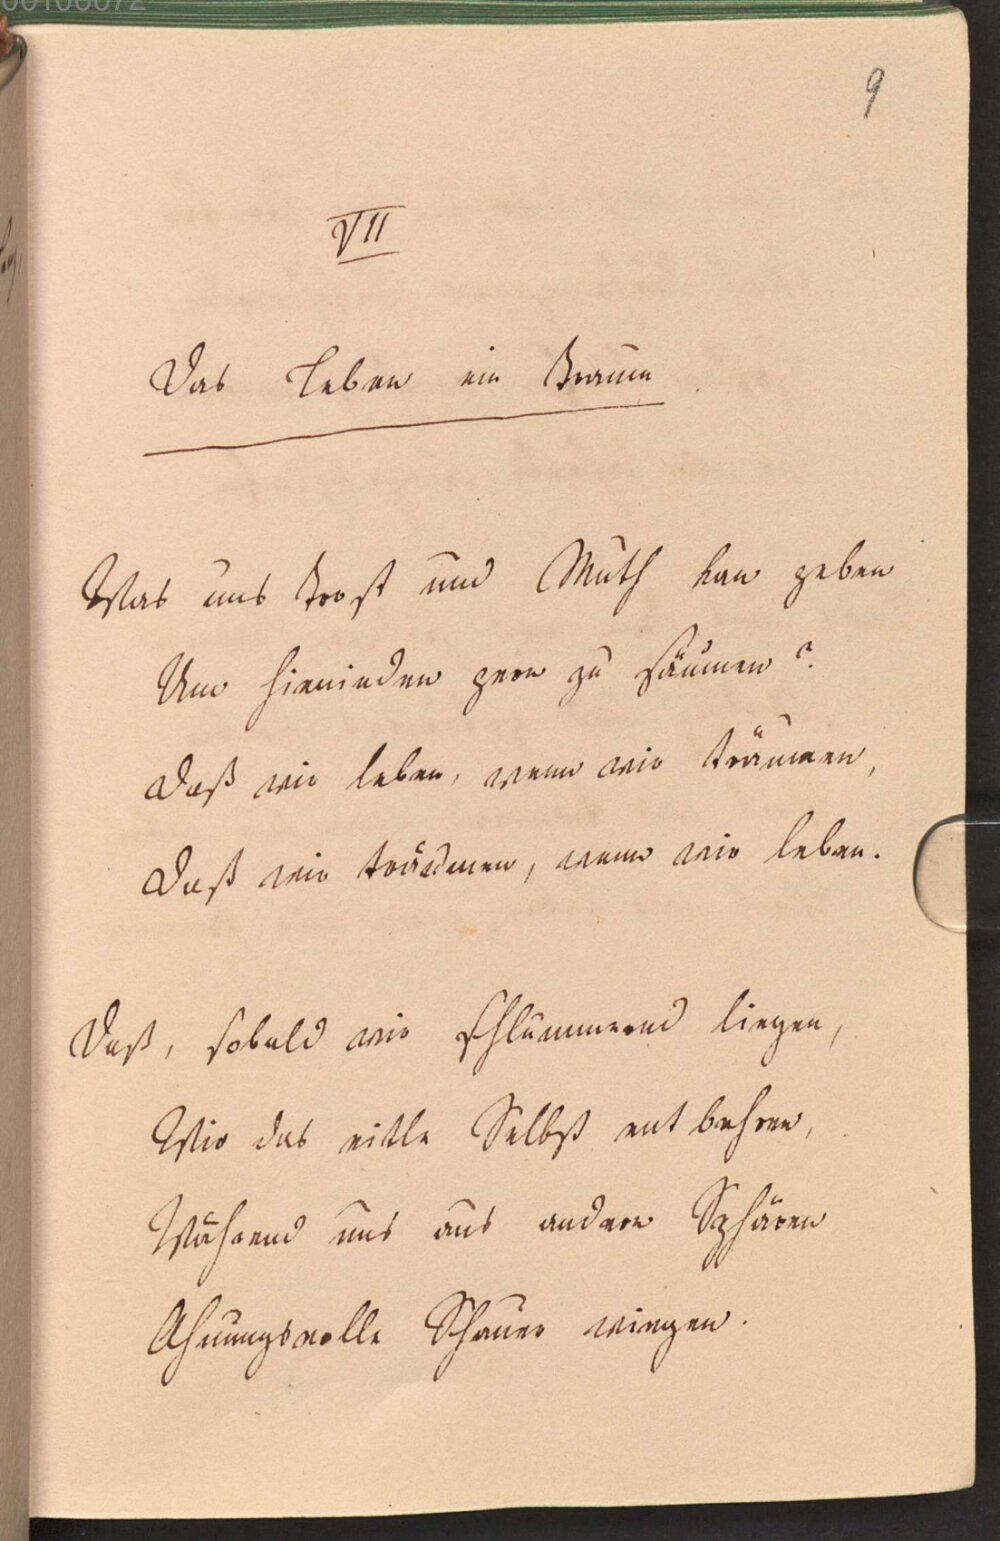 00106072
9
VII
Das Leben ein Traum
Was uns Trost und Muth kan geben
Um hienieden gern zu säumen?
Daß wir leben, wenn wir träumen,
Daß wir träumen, wenn wir leben.
Daß, sobald wir schlummernd liegen,
Wir das eitle Selbst entbehren,
Während uns aus andern Sphären
Ahnungsvolle Schauer wiegen.